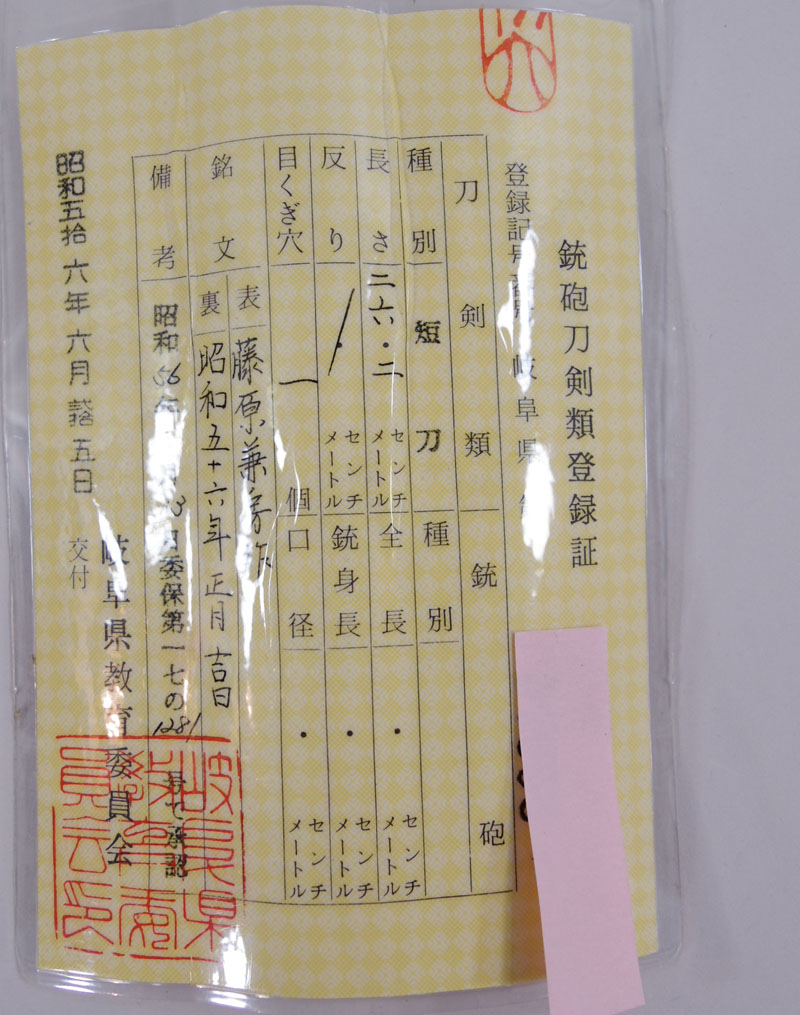 銃砲刀剣類登録証
登録記号番号 岐阜県
刀剣類
銃砲
種別 短刀
種別
長さ 二六・二 センチメートル
全長 ・ センチメートル
反り ・ センチメートル
銃身長 ・ センチメートル
目くぎ穴 一 個
口径 ・ センチメートル
銘文
表 藤原兼房作
裏 昭和五十六年正月吉日
備考 昭和56年 月 3日委保第一七の1281号で承認
昭和五拾六年六月拾五日 交付
岐阜県教育委員会
岐阜県教育委員会印